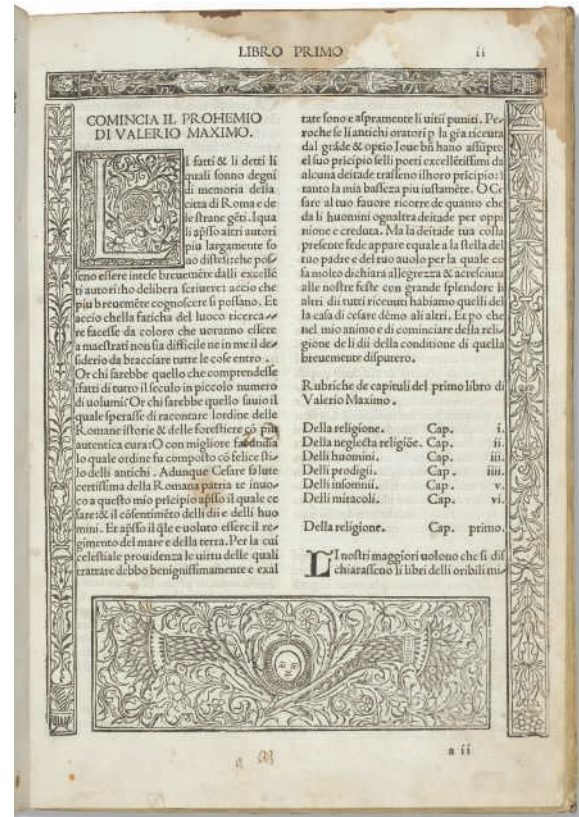 LIBRO PRIMO
ii
COMINCIA IL PROHEMIO
DI VALERIO MAXIMO.
LI fatti & li detti li
quali sonno degni
di memoria della
citta di Roma e de
le strane gẽti. Iqua
li apſſo altri autori
piu largamente so
no distesi: che pos/
seno essere intese breuemẽte dalli excellẽ
ti autori: ho delibera scriuere: accio che
piu breuemẽte cognoscere si possano. Et
accio chella faticha del luoco ricerca//
re facesse da coloro che uoranno essere
a maestrati non sia difficile ne in me il de/
siderio da bracciare tutte le cose entro.
Or chi sarebbe quello che comprendesse
ifatti di tutto il seculo in piccolo numero
di uolumi? Or chi sarebbe quello sauio il
quale sperasse di racontare lordine delle
Romane istorie & delle forestiere cõ piu
autentica cura? O con migliore facundia
lo quale ordine fu composto cõ felice sti/
lo delli antichi. Adunque Cesare salute
certissima della Romana patria te inuo/
co a questo mio prícipio apſſo il quale ce
sare: & il cõsentimẽto delli dii e delli huo
mini. Et apſſo il q̃le e uoluto essere il re/
gimento del mare e della terra. Per la cui
celestiale prouidenza le uirtu delle quali
trattare debbo benignissimamente e exal
tate sono e aspramente li uitii puniti. Pe/
roche se li antichi oratori p la gĩa riceuta
dal grãde & optio Ioue bñ hano assũpto
el suo prícipio se lli poeti excellẽtissimi da
alcuna deitade trasseno ilhoro prícipio:
tanto la mia bassezza piu iustamẽte. O Ce
sare al tuo fauore ricorre de quanto che
da li huomini ognaltra deitade per oppi
nione e creduta. Ma la deitade tua colla
presente fede appare equale a la stella del
tuo padre e del tuo auolo per la quale co
sa molto dichiara allegrezza & acresciuta
alle nostre feste con grande splendore li
altri dii tutti riceuuti habiamo quelli del
la casa di cesare dẽmo ali altri. Et po che
nel mio animo e di cominciare della reli/
gione de li dii della conditione di quella
breuemente disputero.
Rubriche de capituli del primo libro di
Valerio Maximo.
Della religione. Cap. i.
Della neglecta religiõe. Cap. ii.
Delli huomini. Cap. iii.
Delli prodigii. Cap. iiii.
Delli insomnii. Cap. v.
Delli miracoli. Cap. vi.
Della religione. Cap. primo.
LI nostri maggiori uolono che si dis
chiarasseno li libri delli oribili mi/
a ii